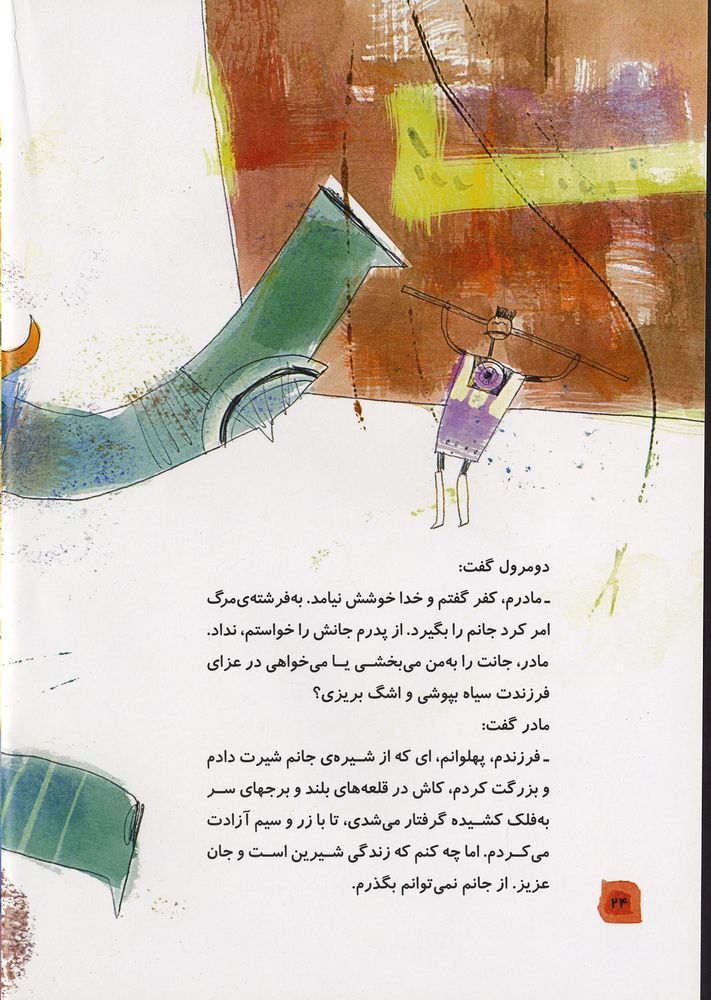 دومرول گفت:
ـ مادرم، کفر گفتم و خدا خوشش نیامد. به‌فرشته‌ی‌مرگ
امر کرد جانم را بگیرد. از پدرم جانش را خواستم، نداد.
مادر، جانت را به‌من می‌بخشی یا می‌خواهی در عزای
فرزندت سیاه بپوشی و اشگ بریزی؟
مادر گفت:
ـ فرزندم، پهلوانم، ای که از شیره‌ی جانم شیرت دادم
و بزرگت کردم، کاش در قلعه‌های بلند و برجهای سر
به‌فلک کشیده گرفتار می‌شدی، تا با زر و سیم آزادت
می‌کردم. اما چه کنم که زندگی شیرین است و جان
عزیز. از جانم نمی‌توانم بگذرم.
۲۴